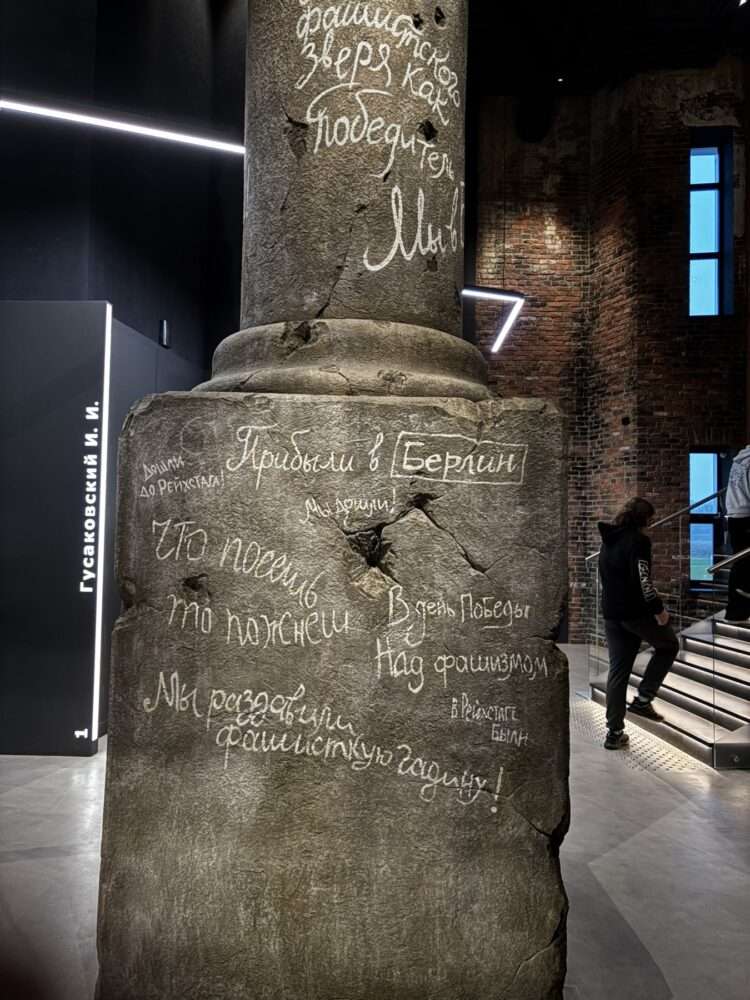 фашистского
зверя как
Победители
Мы в
Прибыли в Берлин
Дошли
до Рейхстага!
Мы дошли!
Что посеешь
то пожнеш
В день Победы
Над фашизмом
Мы раздавили
фашисткую гадину!
В Рейхстаге
были
Гусаковский И. И.
1